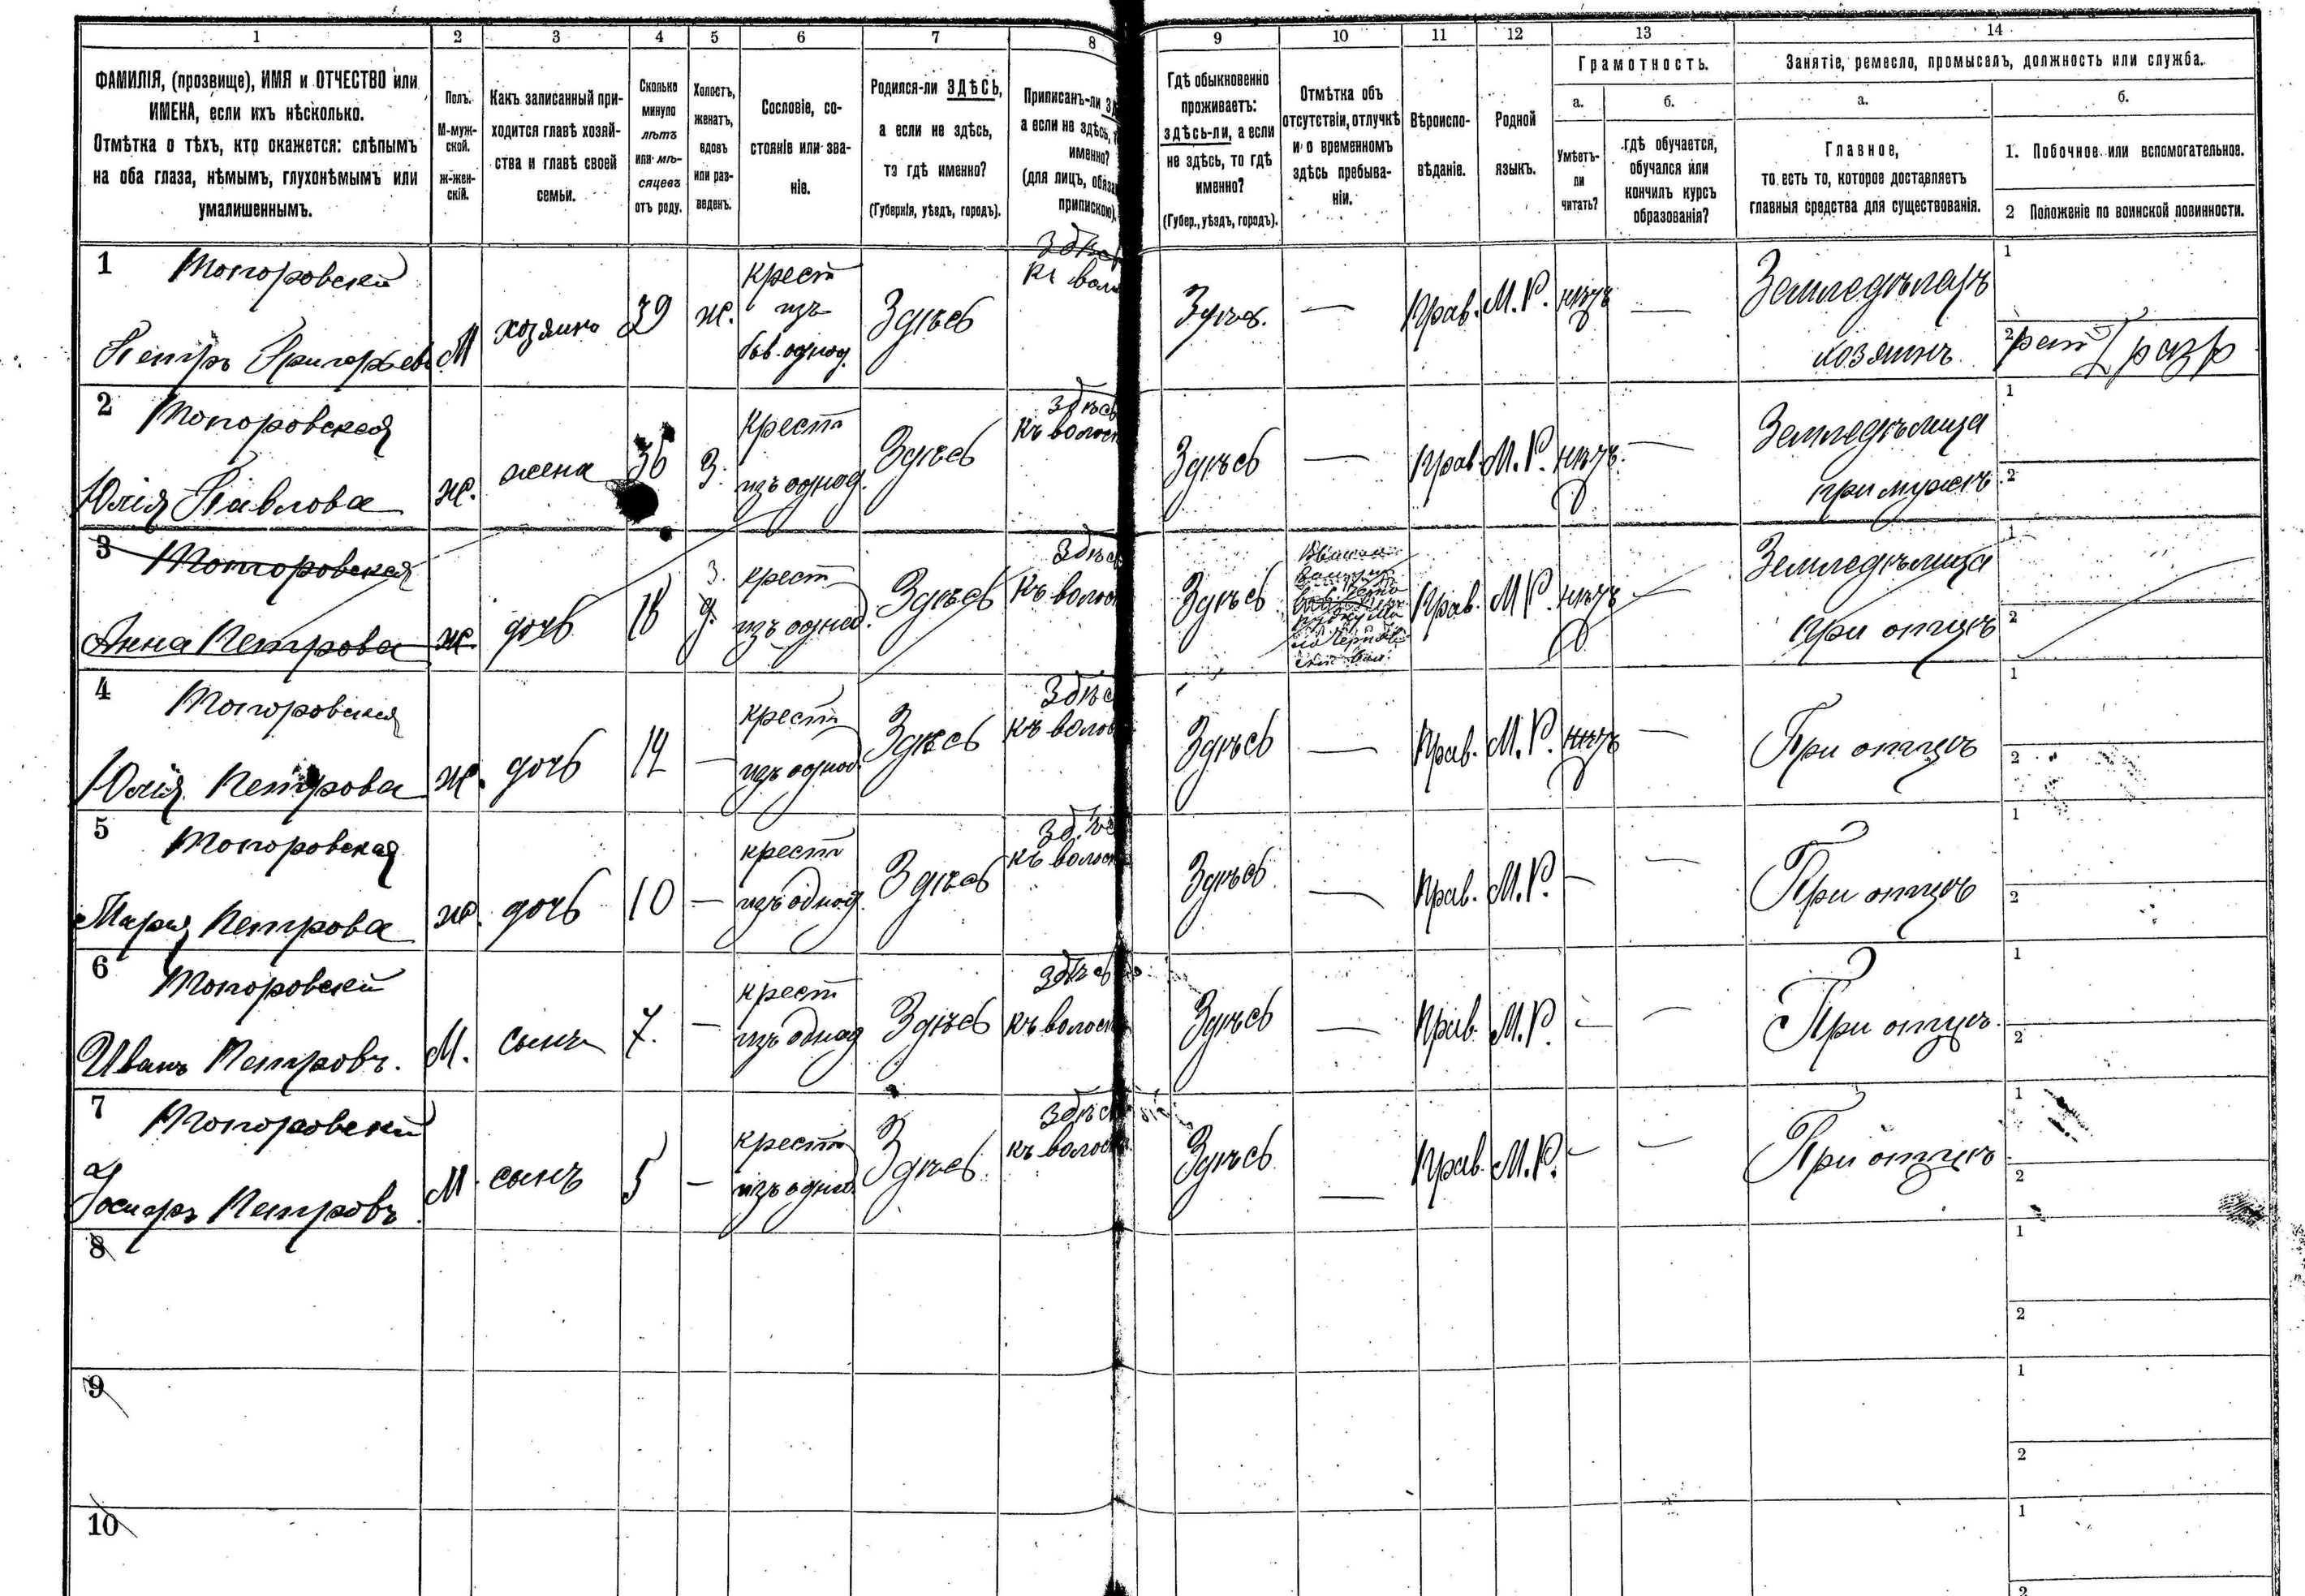 1 2 3 4 5 6 7 8 9 10 11 12 13 14
ФАМИЛІЯ, (прозвище), ИМЯ и ОТЧЕСТВО или
ИМЕНА, если ихъ нѣсколько.
Отмѣтка о тѣхъ, кто окажется: слѣпымъ
на оба глаза, нѣмымъ, глухонѣмымъ или
умалишеннымъ.
Полъ.
М-муж-
ской.
ж-жен-
скій.
Какъ записанный при-
ходится главѣ хозяй-
ства и главѣ своей
семьи.
Сколько
минуло
лѣтъ
или мѣ-
сяцевъ
отъ роду.
Холостъ,
женатъ,
вдовъ
или раз-
веденъ.
Сословіе, со-
стояніе или зва-
ніе.
Родился-ли ЗДѢСЬ,
а если не здѣсь,
то гдѣ именно?
(Губернія, уѣздъ, городъ).
Приписанъ-ли
а если не здѣсь,
именно?
(для лицъ,
припискою).
Гдѣ обыкновенно
проживаетъ:
здѣсь-ли, а если
не здѣсь, то гдѣ
именно?
(Губер., уѣздъ, городъ).
Отмѣтка объ
отсутствіи, отлучкѣ
и о временномъ
здѣсь пребыва-
ніи.
Вѣроиспо-
вѣданіе.
Родной
языкъ.
Грамотность.
а.
Умѣетъ-
ли
читать?
б.
гдѣ обучается,
обучался или
кончилъ курсъ
образованія?
Занятіе, ремесло, промыселъ, должность или служба.
а.
Главное,
то есть то, которое доставляетъ
главныя средства для существованія.
б.
1. Побочное или вспомогательное.
2 Положеніе по воинской повинности.
1 Топоровскій
Петръ Григорьевъ М хозяинъ 39 ж. крест
изъ
быв. однод. Здѣсь
Здѣсь. — Прав. М. Р. нѣтъ — Земледѣлецъ
хозяинъ
1
2
2 Топоровская
Юлія Павлова ж. жена 36 З. крест
изъ однод. Здѣсь здѣсь
къ волост
Здѣсь — Прав. М. Р. нѣтъ — Земледѣлица
при мужѣ
1
2
3 Топоровская
Анна Петрова ж дочь 18 З.
д. крест
изъ однод. Здѣсь Здѣсь
къ волост
Здѣсь Прав. М Р. нѣтъ — Земледѣлица
при отцѣ
1
2
4 Топоровская
Юлія Петрова ж. дочь 12 — крест
изъ однод. Здѣсь Здѣс
къ волос
Здѣсь — Прав. М. Р. нѣтъ — При отцѣ
1
2
5 Топоровская
Марія Петрова ж. дочь 10 — крест
изъ однод. Здѣсь здѣс
къ волост
Здѣсь — Прав. М. Р. — — При отцѣ
1
2
6 Топоровскій
Иванъ Петровъ. М. сынъ 7. — крест
изъ однод Здѣсь здѣсь
къ волост
Здѣсь — Прав. М. Р. — — При отцѣ.
1
2
7 Топоровскій
Петровъ М. сынъ 5 — крест
изъ однод. Здѣсь здѣсь
къ волост
Здѣсь — Прав. М. Р. — — При отцѣ
1
2
8
1
2
9
1
2
10
1
2